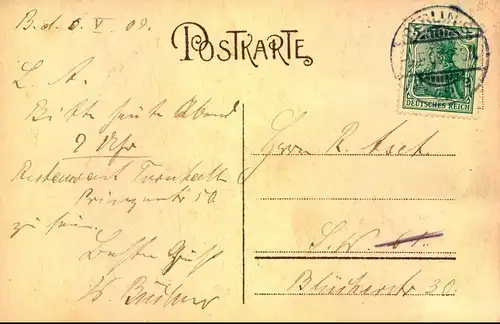 B. d. 6. V 09.
POSTKARTE
BERLIN
DEUTSCHES REICH
L. A.
Bitte heute Abend
9 Uhr
Restaurant Turnhalle
Prinzenstr 50.
zu sein.
Besten Gruß
Herrn R.
S. W. 61.
Blücherstr 30.